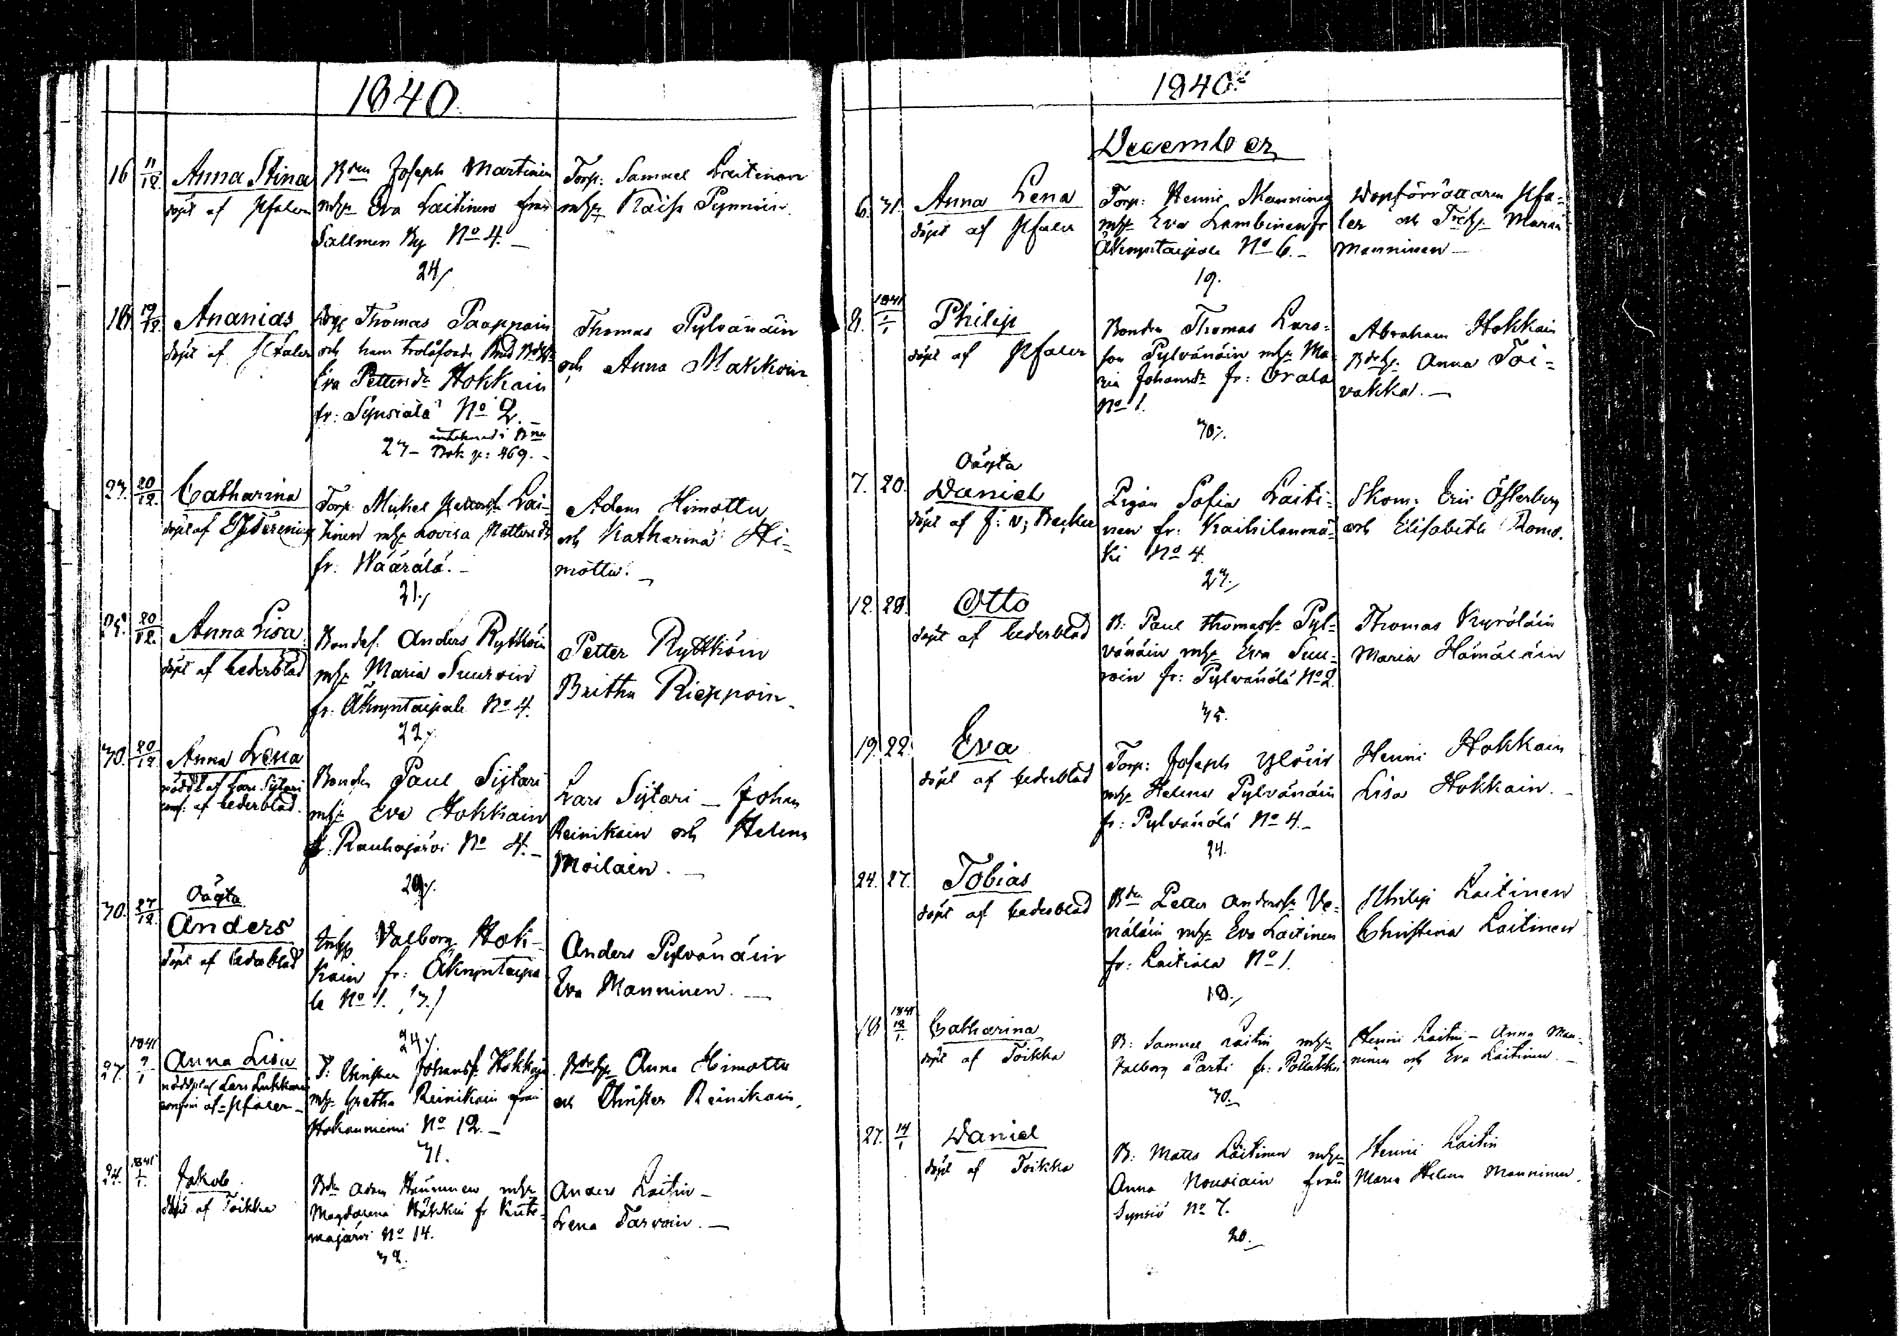 1840.
16 11/12 Anna Stina
döpt af Pfaler
Bden Joseph Martinin
mhu Eva Laitinen från
Sallmen By No 4.
24/
Torp: Samuel Laitinen
mhu Kaisa Pynnöin.
18 19/12 Ananias
döpt af Pfaler
Thomas Paappain
och hans trolofvade
Eva Pettersdr Hokkain
fr: Synsiälä No 2.
27 Bok p: 469.
Thomas Pylvänäin
och Anna Makkoin
27. 20/12 Catharina
döpt af
Torp. Mickel Lai-
tinen mhu Lovisa Mattsdr
fr. Wäärälä.
21./
Adam Himottu
och Katharina Hi-
mottu.
25. 20/12 Anna Lisa
döpt af Cederblad
Bondes. Anders Rytköin
mhu Maria Suuroin
fr. Äkryntaipale No 4.
22/
Petter Rytköin
Britha Rieppoin.
30. 20/12 Anna Lena
nöddöpt af Lars Sijtari
conf: af Cederblad.
Bonden Paul Sijtari
mhu Eva Hokkain
fr. Rauhajärvi No 4.
29/.
Lars Sijtari – Johan
Reinikain och Helena
Moilain.
30. 27/12 Oägta
Anders
döpt af Cederblad
Inhys Valborg Hok-
kain fr: Äkryntaipa
le No 1.
24/.
Anders Pylvänäin
Eva Manninen.
27. 1841 9/1 Anna Lisa
nöddöpt af Lars Lukkarin
confir: af Pfaler
D: Christer Johanss. Hokkain
mhu Gretha Reinikain från
Hokanniemi No 12.
31.
Bdehu Anna Himottu
och Christer Reinikain.
24. 1841 1/1 Jakob.
döpt af Toikka
Bdn Adam mhu
Magdalena Häkkin fr
majärvi No 14.
32.
Anders Laitin
Lena Tarvain.
1840.
December
6. 31. Anna Lena
döpt af Pfaler
Torp: Henric Manninen
mhu Eva Lambinen fr
Äkryntaipale No 6.
19.
Dopförrättaren Pfa-
ler och Maria
Manninen
8. 1841 1/1 Philip
döpt af Pfaler
Bonden Thomas Lars-
son Pylvänäin mhu Ma-
ria Johansdr fr: Orala
No 1.
30/.
Abraham Hokkain
Bdehu Anna Toi-
vakka.
7. 20. Oägta
Daniel
döpt af J: v: Becker
Pigan Sofia Laiti-
nen fr: Kaihilanmä-
ki No 4.
27./
Skom: Eric Österberg
och Elisabeth Roms.
12. 28. Otto
döpt af Cederblad
B: Paul Thomass. Pyl-
vänäin mhu Eva Suu-
roin fr: Pylvänälä No 2.
35.
Thomas Kyröläin
Maria Hämäläin
19. 22. Eva
döpt af Cederblad
Torp: Joseph Ylöin
mhu Helena Pylvänäin
fr: Pylvänälä No 4.
34.
Henric Hokkain
Lisa Hokkain.
24. 27. Tobias
döpt af Cederblad
Bdn Petter Anderss. Ve-
näläin mhu Eva Laitinen
fr: Laitiala No 1.
18./
Philip Laitinen
Christina Laitinen
18 1841 12/1 Catharina
döpt af Toikka
B: Samuel Laitin mhu
Valborg Parti fr: Pöllätkkä
30.
Henric Laitin – Anna Man-
ninen och Eva Laitinen.
27. 14/1 Daniel
döpt af Toikka
B: Matts Laitinen mhu
Anna Nousiain från
Synsiö No 7.
20.
Henric Laitin
Maria Helena Manninen.